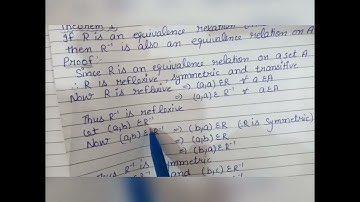 Theorem
If R is an equivalence relation
then R⁻¹ is also an equivalence relation on A
Proof:
Since R is an equivalence relation on a set A
∴ R is reflexive, symmetric and transitive
Now R is reflexive ⇒ (a,a) ∈ R ∀ a ∈ A
⇒ (a,a) ∈ R⁻¹ ∀ a ∈ A
Thus R⁻¹ is reflexive
Let (a,b) ∈ R⁻¹
Now (a,b) ∈ R⁻¹ ⇒ (b,a) ∈ R
⇒ (a,b) ∈ R (∵ R is symmetric)
⇒ (b,a) ∈ R⁻¹
Thus R⁻¹ is symmetric
and (b,c) ∈ R⁻¹